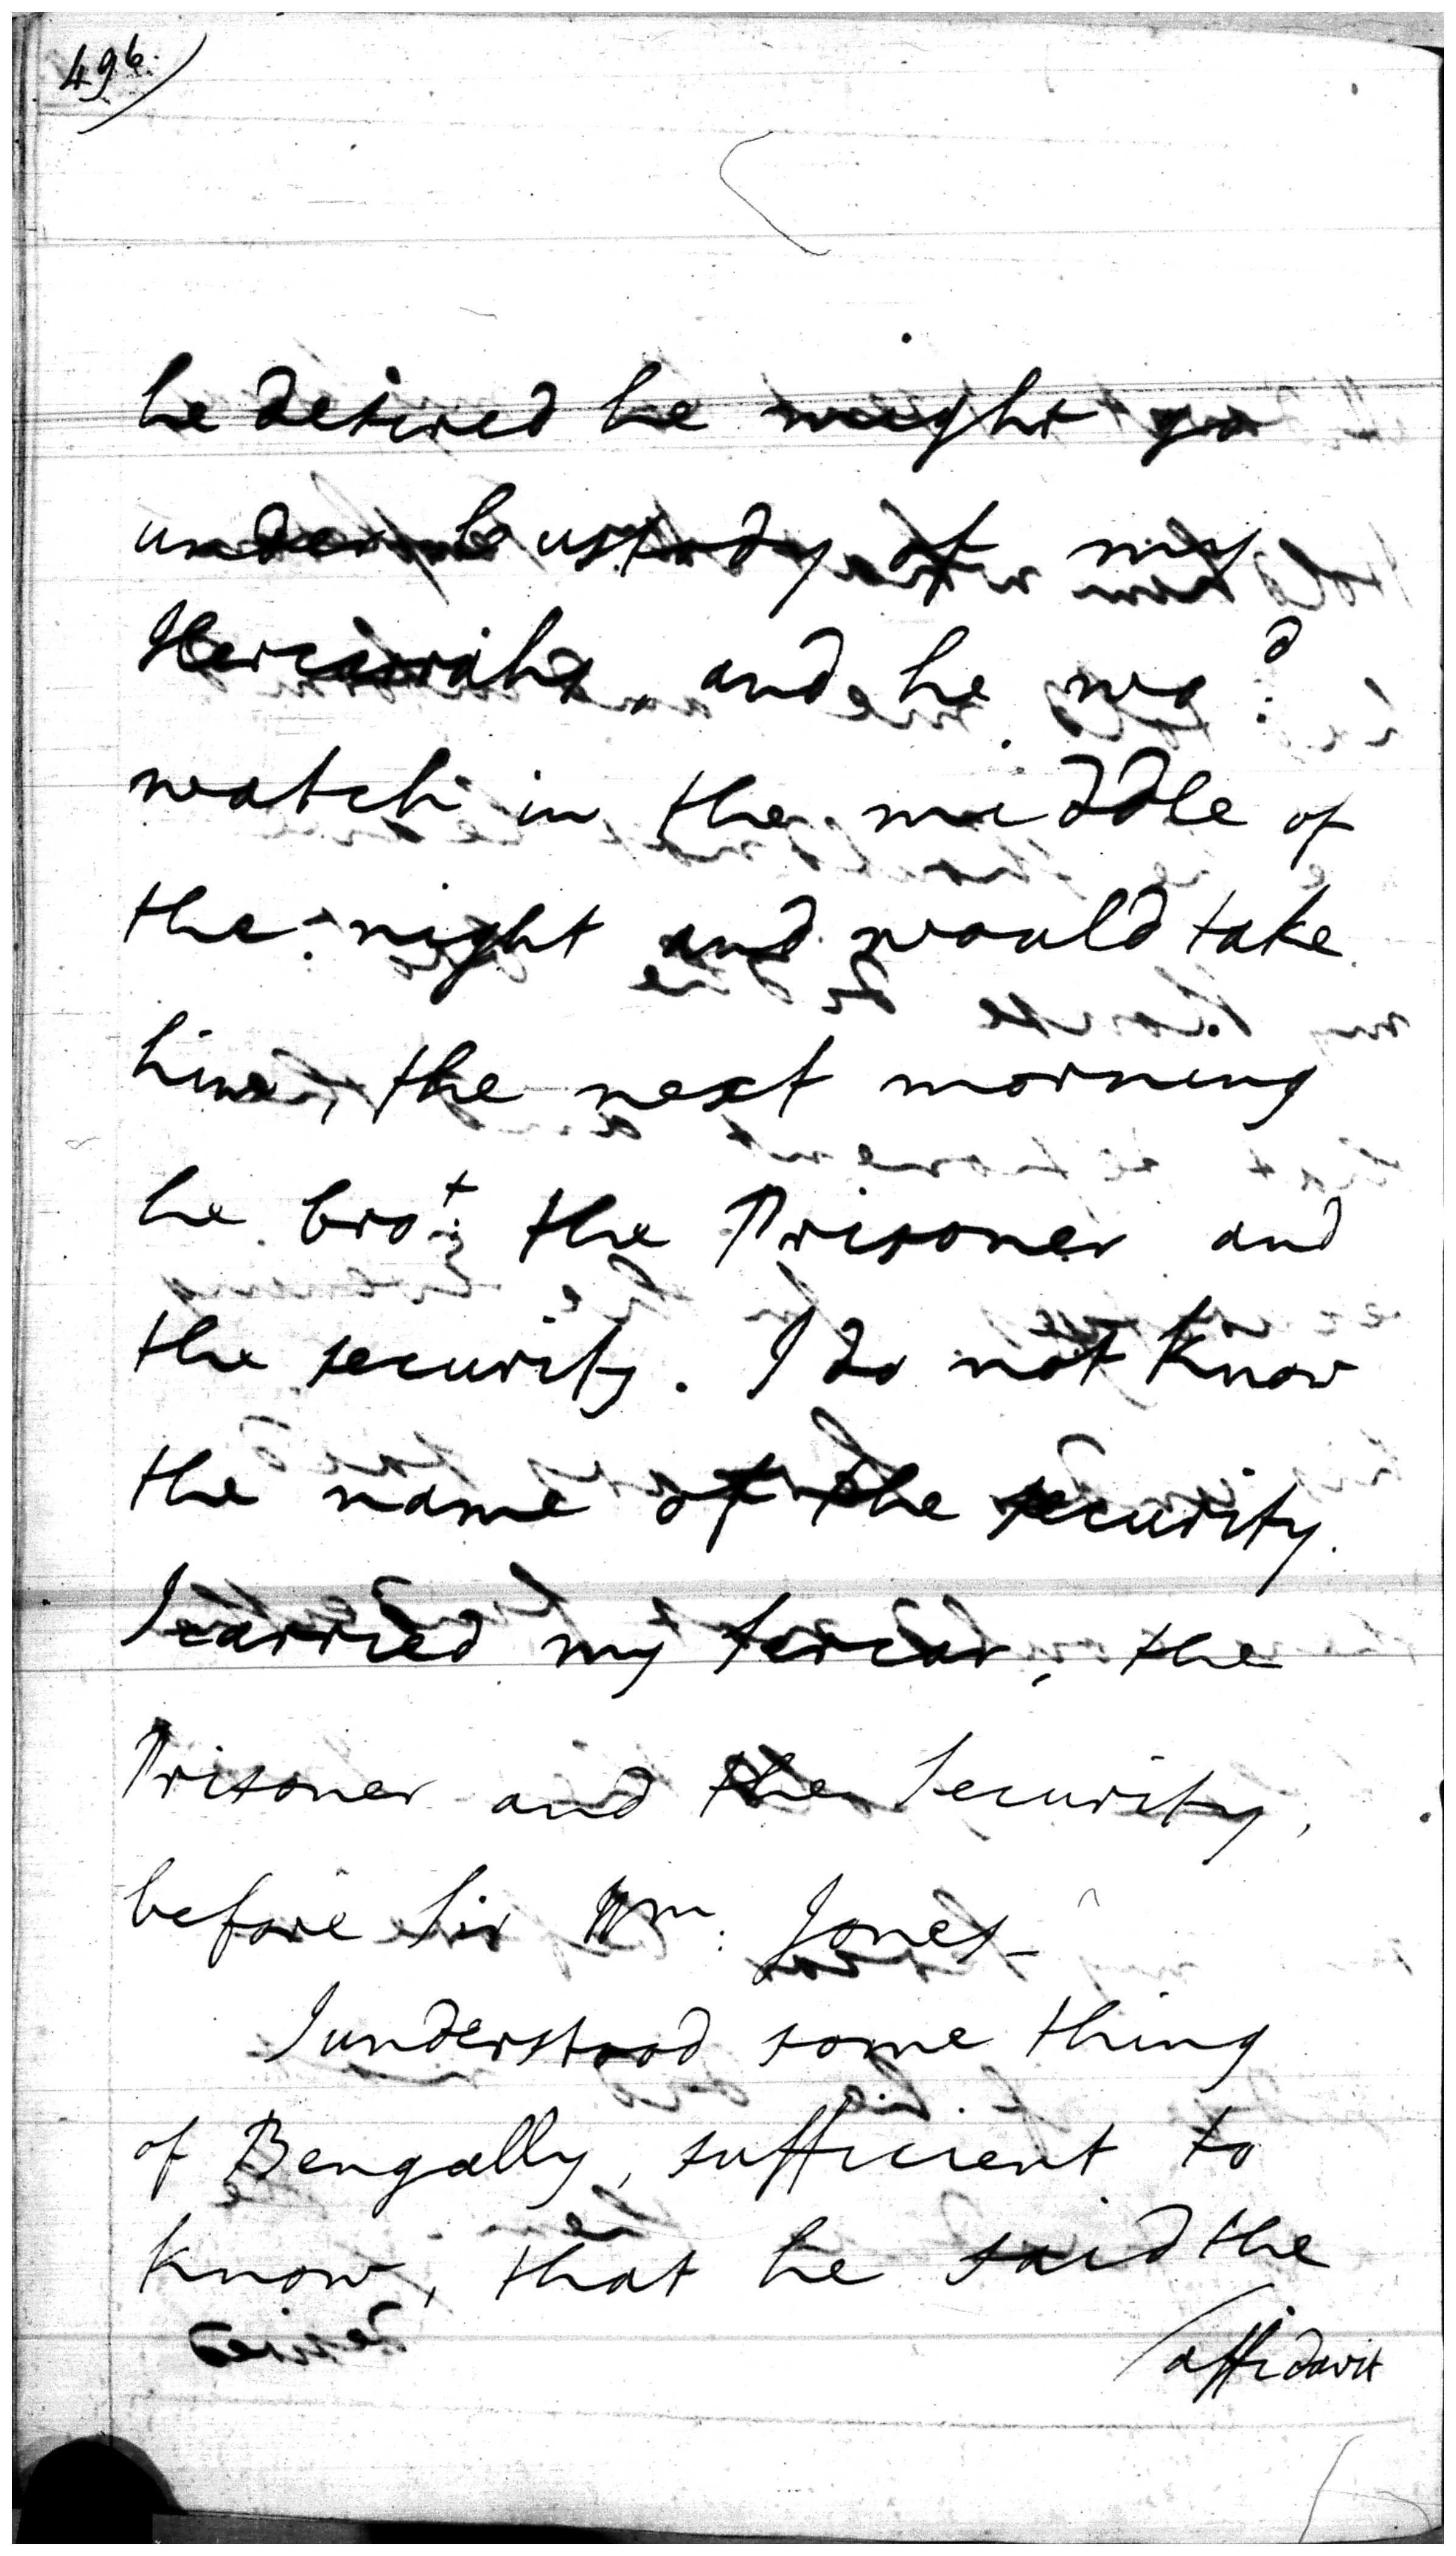 496.
he desired he might go
under custody of my
Hercarrahs, and he wo:d
watch in the middle of
the night and would take
him, the next morning
he bro:t the Prisoner and
the security. I do not know
the name of the security.
I carried my Sercar, the
Prisoner and the Security,
before Sir Wm: Jones
I understood some thing
of Bengally, sufficient to
know, that he said the
affidavit